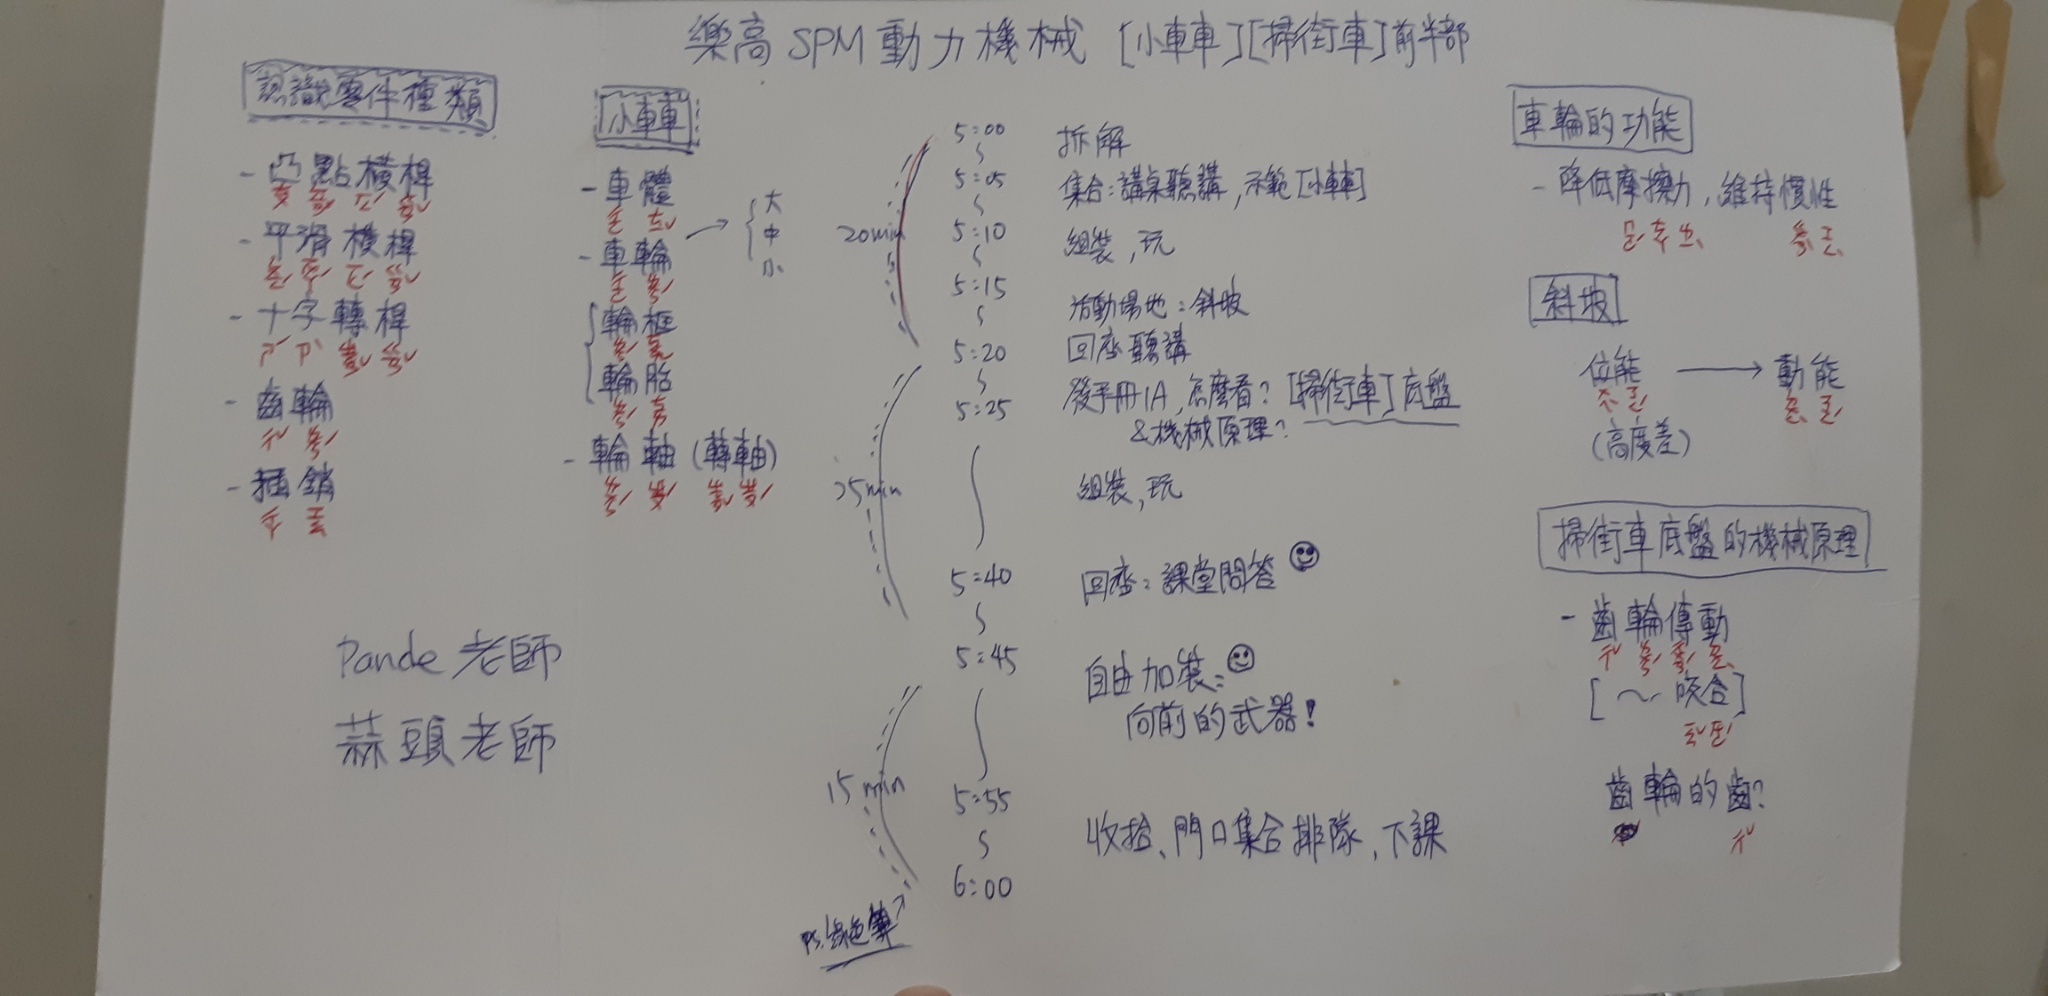 樂高 SPM 動力機械 [小車車][掃街車]前半部
認識零件種類
- 凸點橫桿
- 平滑橫桿
- 十字轉桿
- 齒輪
- 插銷
Pande 老師
蒜頭老師
小車車
- 車體
- 車輪 → { 大 中 小
{ 輪框
輪胎
- 輪軸 (轉軸)
20min
25min
15min
5:00
拆解
5:05
集合:講桌聽講,示範[小車車]
5:10
組裝,玩
5:15
活動場地:斜坡
5:20
回座聽講
5:25
發手冊1A,怎麼看?[掃街車]底盤
&機械原理?
組裝,玩
5:40
回座:課堂問答
5:45
自由加裝:
向前的武器!
5:55
收拾、門口集合排隊,下課
6:00
ps.綠色筆
車輪的功能
- 降低摩擦力,維持慣性
斜坡
位能 → 動能
(高度差)
掃街車底盤的機械原理
- 齒輪傳動
[ ~ 咬合]
齒輪的齒?